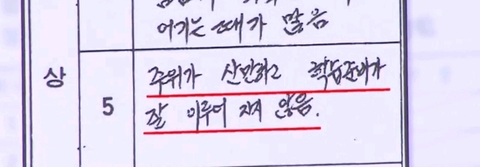 어기는 때가 많음
상
5
주위가 산만하고 학습준비가
잘 이루어 지지 않음.